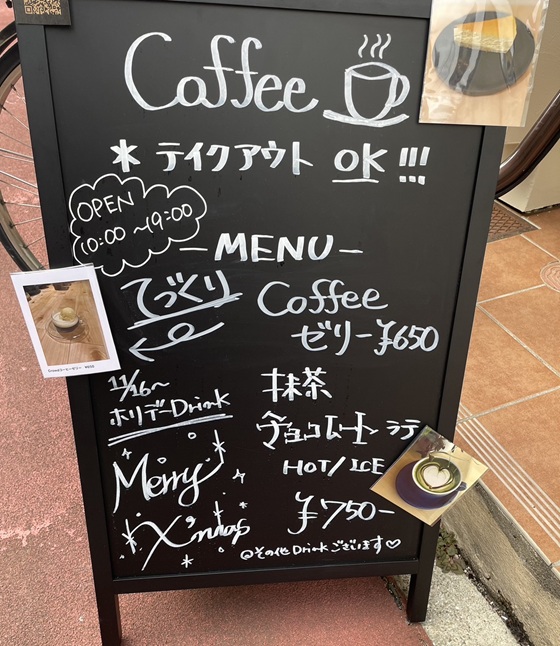 Coffee
* テイクアウト OK!!!
OPEN
10:00 ~19:00
-MENU-
てづくり Coffee
ゼリー ¥650
11/16~
ホリデーDrink
抹茶
チョコレートラテ
HOT/ICE
¥750-
Merry
X'mas
@その他Drinkございます♡